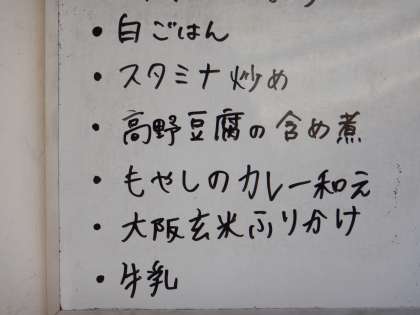 ・白ごはん
・スタミナ炒め
・高野豆腐の含め煮
・もやしのカレー和え
・大阪玄米ふりかけ
・牛乳